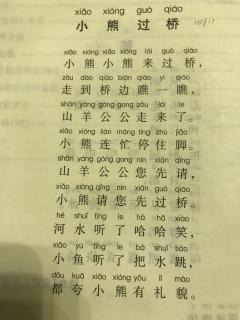 xiǎo xióng guò qiáo
小熊过桥
10/11
xiǎo xióng xiǎo xióng lái guò qiáo
小熊小熊来过桥，
zǒu dào qiáo biān qiáo yi qiáo
走到桥边瞧一瞧，
shān yáng gōng gong zǒu lái le
山羊公公走来了。
xiǎo xióng lián máng tíng zhù jiǎo
小熊连忙停住脚。
shān yáng gōng gong nín xiān qǐng
山羊公公您先请，
xiǎo xióng qǐng nín xiān guò qiáo
小熊请您先过桥。
hé shuǐ tīng le hā hā xiào
河水听了哈哈笑，
xiǎo yú tīng le bǎ shuǐ tiào
小鱼听了把水跳，
dōu kuā xiǎo xióng yǒu lǐ mào
都夸小熊有礼貌。